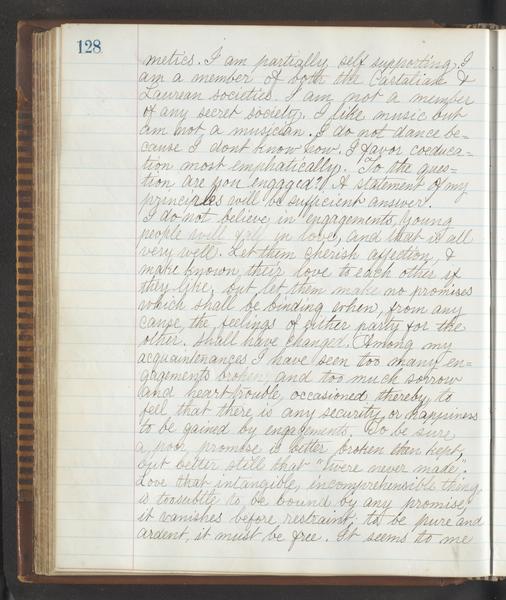 128
metics. I am partially self supporting. I
am a member of both the Castalian &
Laurean societies. I am not a member
of any secret society. I like music but
am not a musician. I do not dance be=
cause I dont know how. I favor coeduca=
tion most emphatically. To the ques=
tion are you engaged? A statement of my
principles will be sufficient answer.
I do not believe in engagements, young
people will fall in love, and that is all
very well. Let them cherish affection, &
make known their love to each other if
they like, but let them make no promises
which shall be binding when, from any
cause, the feelings of either party for the
other, shall have changed. Among my
acquaintenances I have seen too many en=
gagements broken, and too much sorrow
and heart trouble, occasioned thereby, to
fell that there is any security or happiness
to be gained by engagements. To be sure
a poor promise is better broken than kept,
but better still that 'twere never made.
Love that intangible, incomprehensible thing,
is to be bound by any promise,
it vanishes before restraint, to be pure and
ardent, it must be free. It seems to me